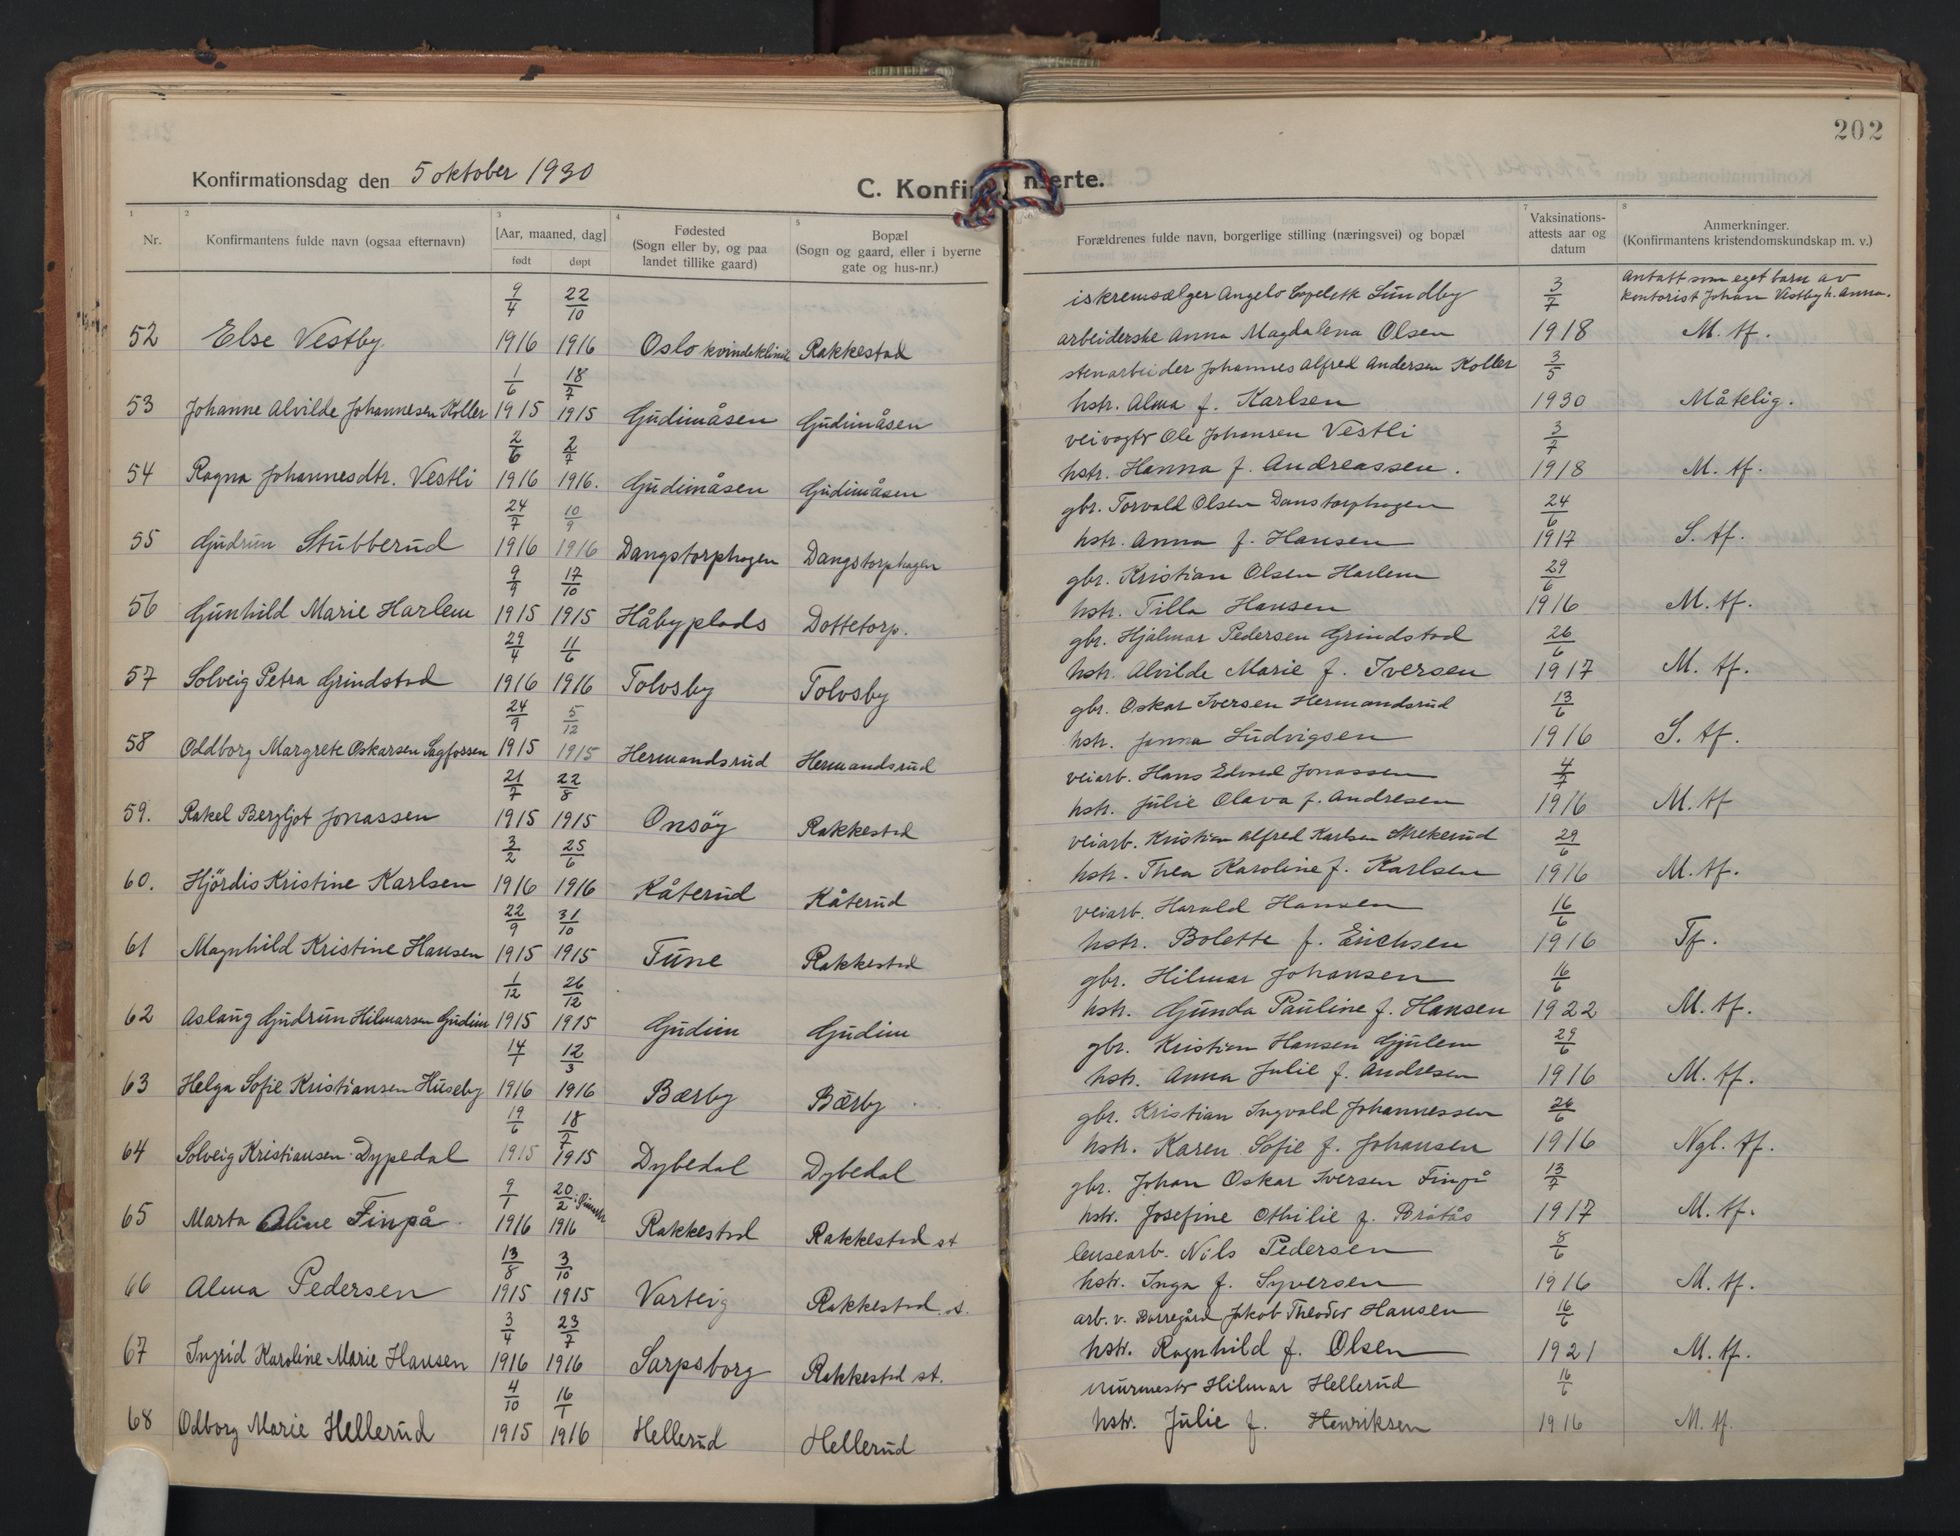 202
Konfirmationsdag den 5 oktober 1930
C. Konfir merte.
1 2 3 4 5 7 8
Nr.
Konfirmantens fulde navn (ogsaa efternavn)
[Aar, maaned, dag]
født døpt
Fødested
(Sogn eller by, og paa
landet tillike gaard)
Bopæl
(Sogn og gaard, eller i byerne
gate og hus-nr.)
Forældrenes fulde navn, borgerlige stilling (næringsvei) og bopæl
Vaksinations-
attests aar og
datum
Anmerkninger.
(Konfirmantens kristendomskundskap m. v.)
9/4 22/10 iskremsælger Angelo Lundby 3/7 Antatt som eget barn av
kontorist Johan Vestby h. Anna.
52 Else Vestby 1916 1916 Oslo kvindeklinik Rakkestad arbeiderske Anna Magdalena Olsen 1918 M. tf.
1/6 18/7 stenarbeider Johannes Alfred Andersen Koller 3/5
53 Johanne Alvilde Johannesen Koller 1915 1915 Gudimåsen Gudimåsen hstr. Alma f. Karlsen 1930 Måtelig.
2/6 2/7 veivogtr Ole Johansen Vestli 3/7
54 Ragna Johannesdtr. Vestli 1916 1916. Gudimåsen Gudimåsen hstr. Hanna f. Andreassen. 1918 M. tf.
24/7 10/9 gbr. Torvald Olsen Danstorphagen 24/6
55 Gudrun Stubberud 1916 1916 Dangstorphagen Dangstorphagen hstr. Anna f. Hansen 1917 S. tf.
9/9 17/10 gbr. Kristian Olsen Harlem 29/6
56 Gunhild Marie Harlem 1915 1915 Håbyplads Dottetorp. hstr. Tilla Hansen 1916 M. tf.
29/4 11/6 gbr. Hjalmar Pedersen Grindstad 26/6
57 Solveig Petra Grindstad 1916 1916 Tolvsby Tolvsby hstr. Alvilde Marie f. Iversen 1917 M. tf.
24/9 5/12 gbr. Oskar Iversen Hermandsrud 13/6
58 Oddborg Margrete Oskarsen Sagfossen 1915 1915 Hermandsrud Hermandsrud hstr. Janna Ludvigsen 1916 S. tf.
21/7 22/8 veiarb. Hans Edvard Jonassen 4/7
59. Rakel Bergljot Jonassen 1915 1915 Onsöy Rakkestad hstr. Julie Olava f. Andresen 1916 M. tf
3/2 25/6 veiarb. Kristian Alfred Karlsen Strekerud 29/6
60. Hjördis Kristine Karlsen 1916 1916 Kåterud Kåterud hstr. Thea Karoline f. Karlsen 1916 M. tf.
22/9 31/10 veiarb. Harald Hansen 16/6
61 Magnhild Kristine Hansen 1915 1915 Tune Rakkestad hstr. Bolette f. Erichsen 1916 Tf.
1/12 26/12 gbr. Hilmar Johansen 16/6
62 Aslaug Gudrun Hilmarsen Gudim 1915 1915 Gudim Gudim hstr. Gunda Pauline f. Hansen 1922 M. tf.
14/1 12/3 gbr. Kristian Hansen Gjulem 29/6
63 Helga Sofie Kristiansen Huseby 1916 1916 Bærby Bærby hstr. Anna Julie f. Andresen 1916 M. tf.
19/6 18/7 gbr. Kristian Ingvald Johannessen 26/6
64 Solveig Kristiansen Dypedal 1915 1915 Dybedal Dybedal hstr. Karen Sofie f. Johansen 1916 Ngl. tf.
9/1 20/2 gbr. Johan Oskar Iversen Finpå 13/7
65 Marta Oline Finpå 1916 1916 Rakkestad Rakkestad st hstr. Josefine Othilie f. Bråtås 1917 M. tf.
13/8 3/10 lensearb. Nils Pedersen 8/6
66 Alma Pedersen 1915 1915 Varteig Rakkestad st. hstr. Inga f. Syversen 1916 M. tf.
3/4 23/7 arb. v. Borregård Jakob Theodor Hansen 16/6
67 Ingrid Karoline Marie Hansen 1916 1916 Sarpsborg Rakkestad st. hstr. Ragnhild f. Olsen 1921 M. tf.
4/10 16/1 murmestr Hilmar Hellerud 16/6
68 Odborg Marie Hellerud 1915 1916 Hellerud Hellerud hstr. Julie f. Henriksen 1916 M. tf.